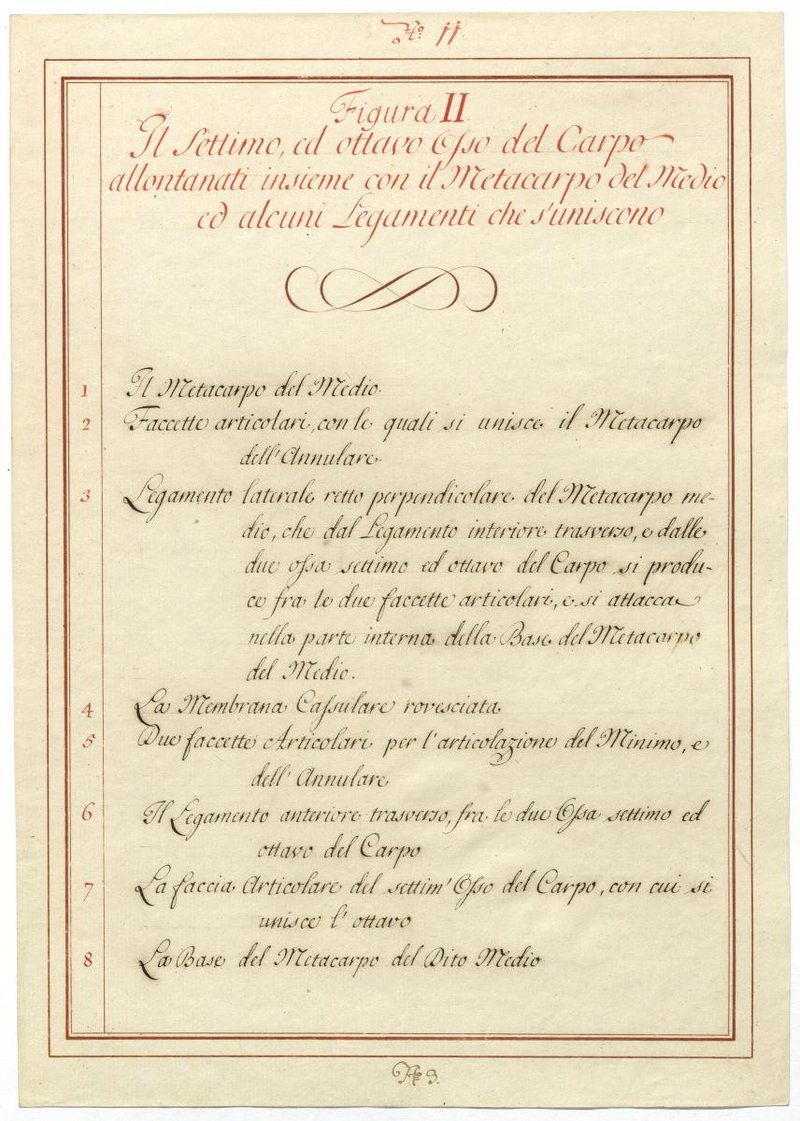 No. 11
Figura II
Il Settimo, ed ottavo Osso del Carpo
allontanati insieme con il Metacarpo del Medio
ed alcuni Legamenti che s'uniscono
1 Il Metacarpo del Medio
2 Faccette articolari, con le quali si unisce il Metacarpo
dell'Annulare
3 Legamento laterale retto perpendicolare del Metacarpo me-
dio, che dal Legamento interiore trasverso, e dalle
due ossa settimo ed ottavo del Carpo si produ-
ce fra le due faccette articolari, e si attacca
nella parte interna della Base del Metacarpo
del Medio.
4 La Membrana Cassulare rovesciata
5 Due faccette Articolari per l'articolazione del Minimo, e
dell'Annulare
6 Il Legamento anteriore trasverso, fra le due Ossa settimo ed
ottavo del Carpo
7 La faccia Articolare del settim' Osso del Carpo, con cui si
unisce l'ottavo
8 La Base del Metacarpo del Dito Medio
3.